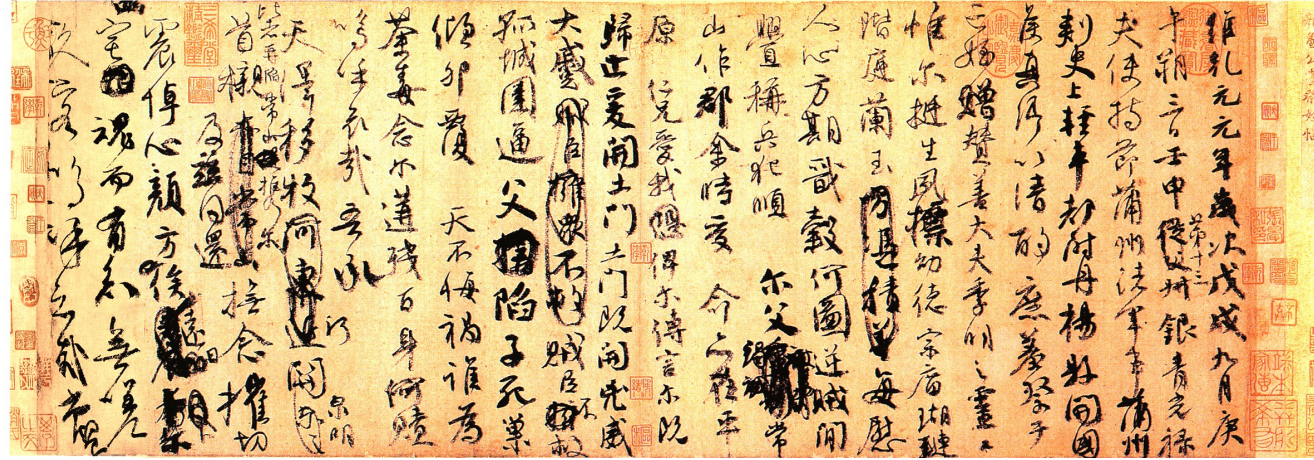 維乾元元年歲次戊戌九月庚
午朔三日壬申第十三從父銀青光祿
夫使持節蒲州諸軍事蒲州
刺史上輕車都尉丹楊縣開國
侯真卿以清酌庶羞祭于
亡姪贈贊善大夫季明之靈曰
惟爾挺生夙標幼德宗廟瑚璉
階庭蘭玉方憑積善每慰
人心方期戩穀何圖逆賊間
釁稱兵犯順爾父竭誠常
山作郡余時受命亦在平
原仁兄愛我俾爾傳言爾既
歸止爰開土門土門既開凶威
大蹙賊臣擁眾不救賊臣不救
孤城圍逼父陷子死巢
傾卵覆天不悔禍誰為
荼毒念爾遘殘百身何贖
嗚乎哀哉吾承
天澤移牧河關泉明
比者再陷常山攜爾
首櫬及茲同還撫念摧切
震悼心顏方俟遠日
魂而有知無嗟
久客嗚呼哀哉尚饗